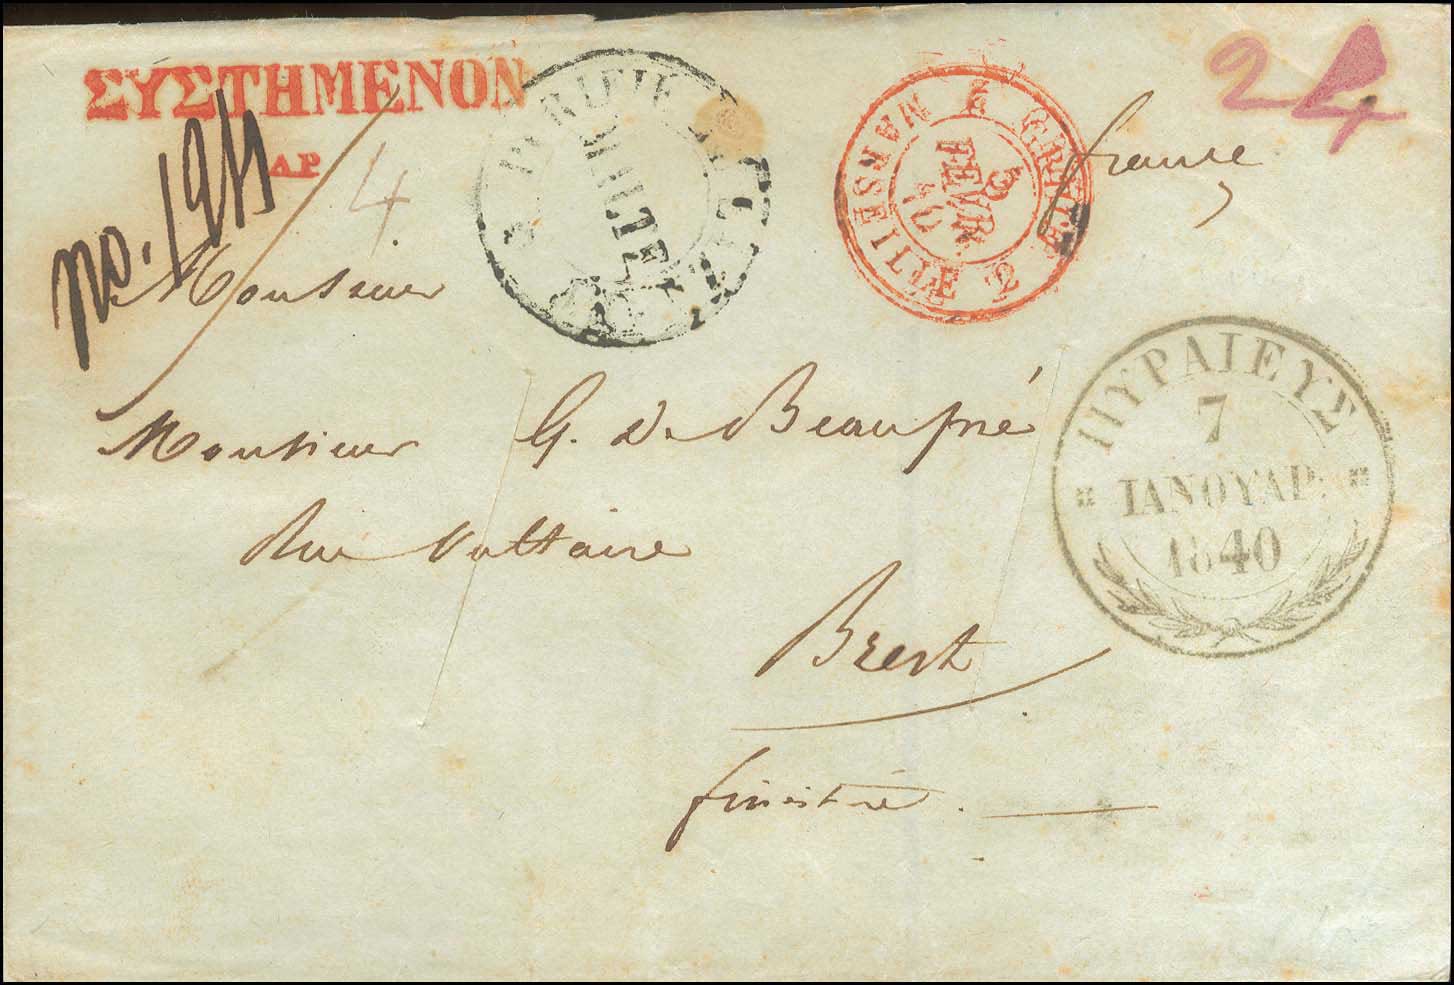 ΣΥΣΤΗΜΕΝΟΝ
24
ΑΡ
4
no.
GRÈCE MARSEILLE 2
5
FEVR.
40
france
Monsieur
ΠΥΡΑΙΕΥΣ
7
ΙΑΝΟΥΑΡ.
1840
Monsieur G. de Beaupré
Rue Voltaire
Brest
finistère.